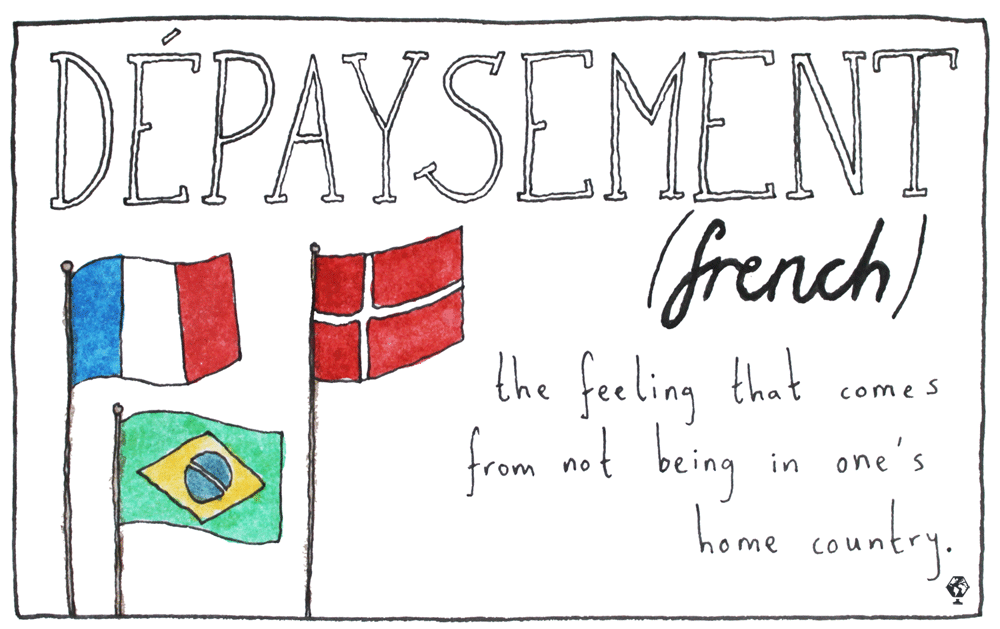 DÉPAYSEMENT
(french)
the feeling that comes
from not being in one's
home country.